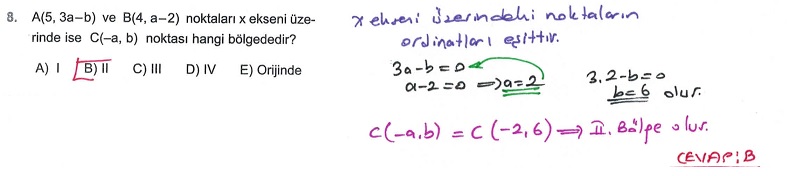 8. A(5, 3a–b) ve B(4, a–2) noktaları x ekseni üze-
rinde ise C(–a, b) noktası hangi bölgededir?
A) I B) II C) III D) IV E) Orijinde
x ekseni üzerindeki noktaların
ordinatları eşittir.
3a-b=0
a-2=0 ⟹ a=2
3.2-b=0
b=6 olur.
C(-a,b) = C(-2,6) ⟹ II. Bölge olur.
CEVAP:B